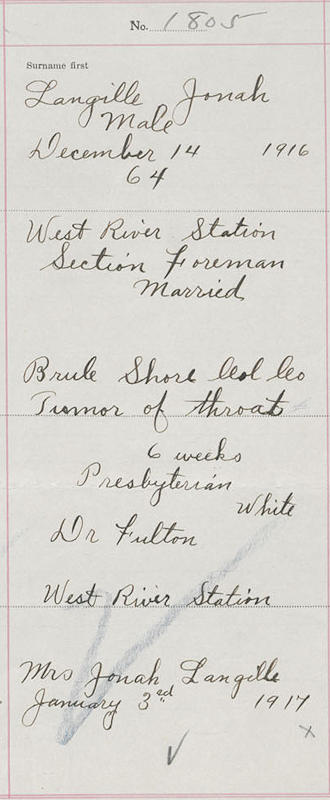 No. 1805
Surname first
Langille Jonah
Male
December 14 1916
64
West River Station
Section Foreman
Married
Brule Shore Col Co
Tumor of throat
6 weeks
Presbyterian
White
Dr Fulton
West River Station
Mrs Jonah Langille
January 3rd 1917